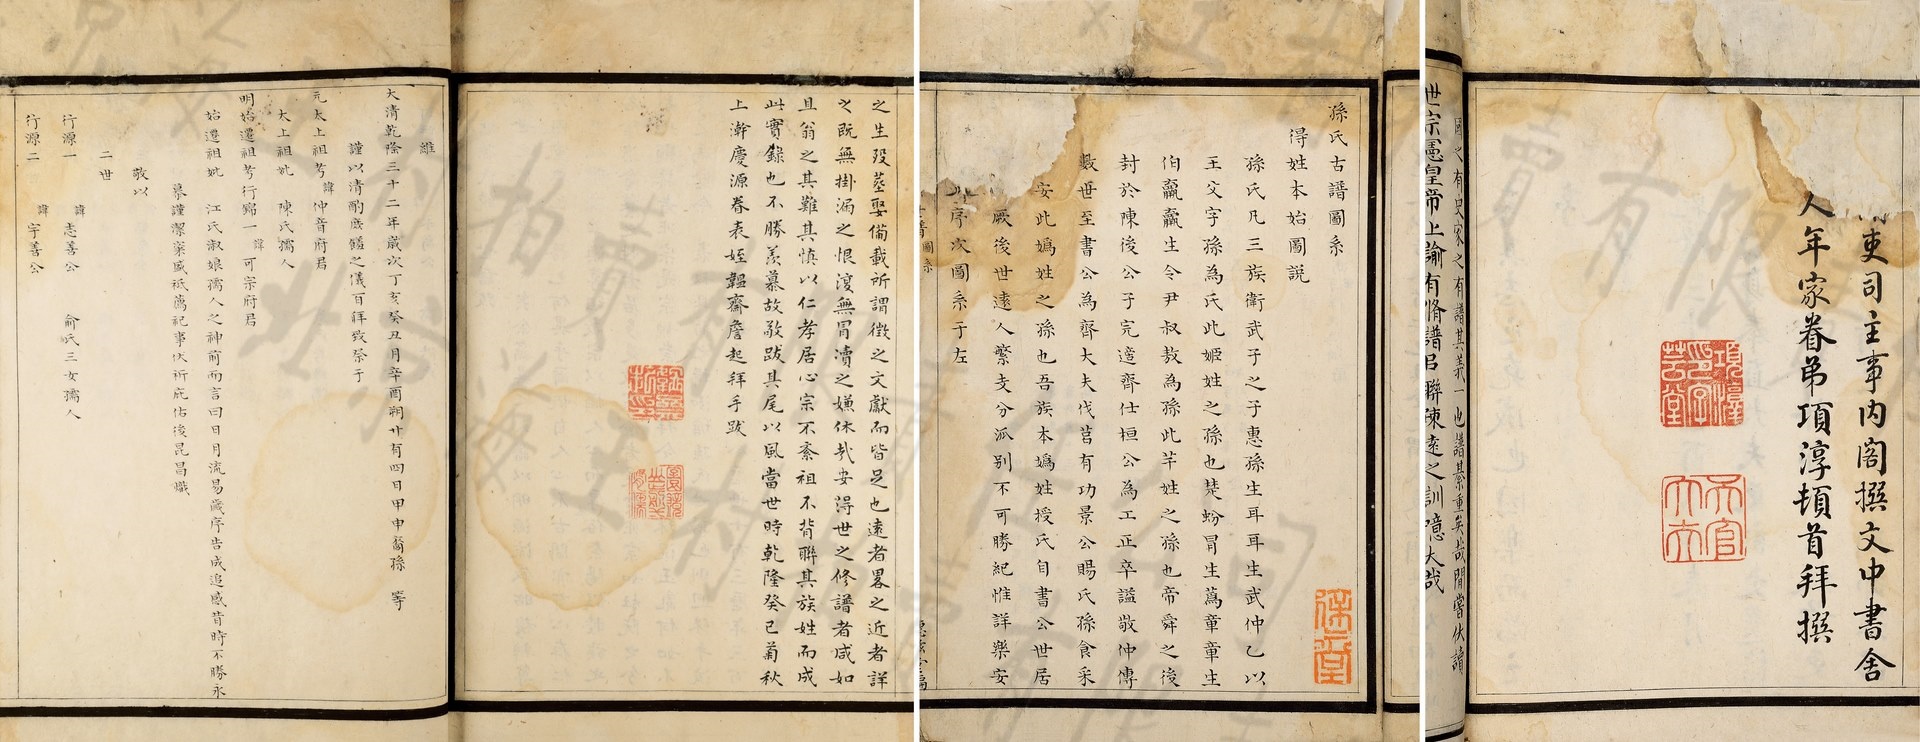 吏司主事內閣撰文中書舍
人年家眷弟項淳頓首拜撰
國之有史家之有譜其義一也譜綦重矣哉間嘗伏讀
世宗憲皇帝上諭有脩譜
聯疎遠之訓噫大哉
孫氏古譜圖系
得姓本始圖說
孫氏凡三族衛武子之子惠孫生耳耳生武仲乙以
王父字孫為氏此姬姓之孫也楚蚡冒生蒍章章生
伯嬴嬴生令尹叔敖為孫此羋姓之孫也帝舜之後
封於陳後公子完適齊仕桓公為工正卒謚敬仲傳
數世至書公為齊大夫伐莒有功景公賜氏孫食采
安此嬀姓之孫也吾族本嬀姓授氏自書公世居
厥後世遠人繁支分派别不可勝紀惟詳樂安
序次圖系于左
之生歿塟娶備載所謂徵之文獻而皆足也遠者畧之近者詳
之既無掛漏之恨復無冒瀆之嫌休哉安得世之修譜者咸如
且翁之其難其慎以仁孝居心宗不紊祖不背聯其族姓而成
此實錄也不勝羨慕故敬跋其尾以風當世時乾隆癸巳菊秋
上澣慶源眷表姪韞齋詹起拜手跋
維
大清乾隆三十二年歲次丁亥癸丑月辛酉朔廿有四日甲申裔孫 等
謹以清酌庶饈之儀百拜致祭于
元太上祖考諱仲音府君
太上祖妣 陳氏孺人
明始遷祖考行錦一諱可宗府君
始遷祖妣 江氏淑娘孺人之神前而言曰日月流易歲序告成追感昔時不勝永
慕謹潔粢盛祇薦祀事伏祈庇佑後昆昌熾
敬以
二世
行源一 諱志善公 俞氏三女孺人
行源二 諱宇善公